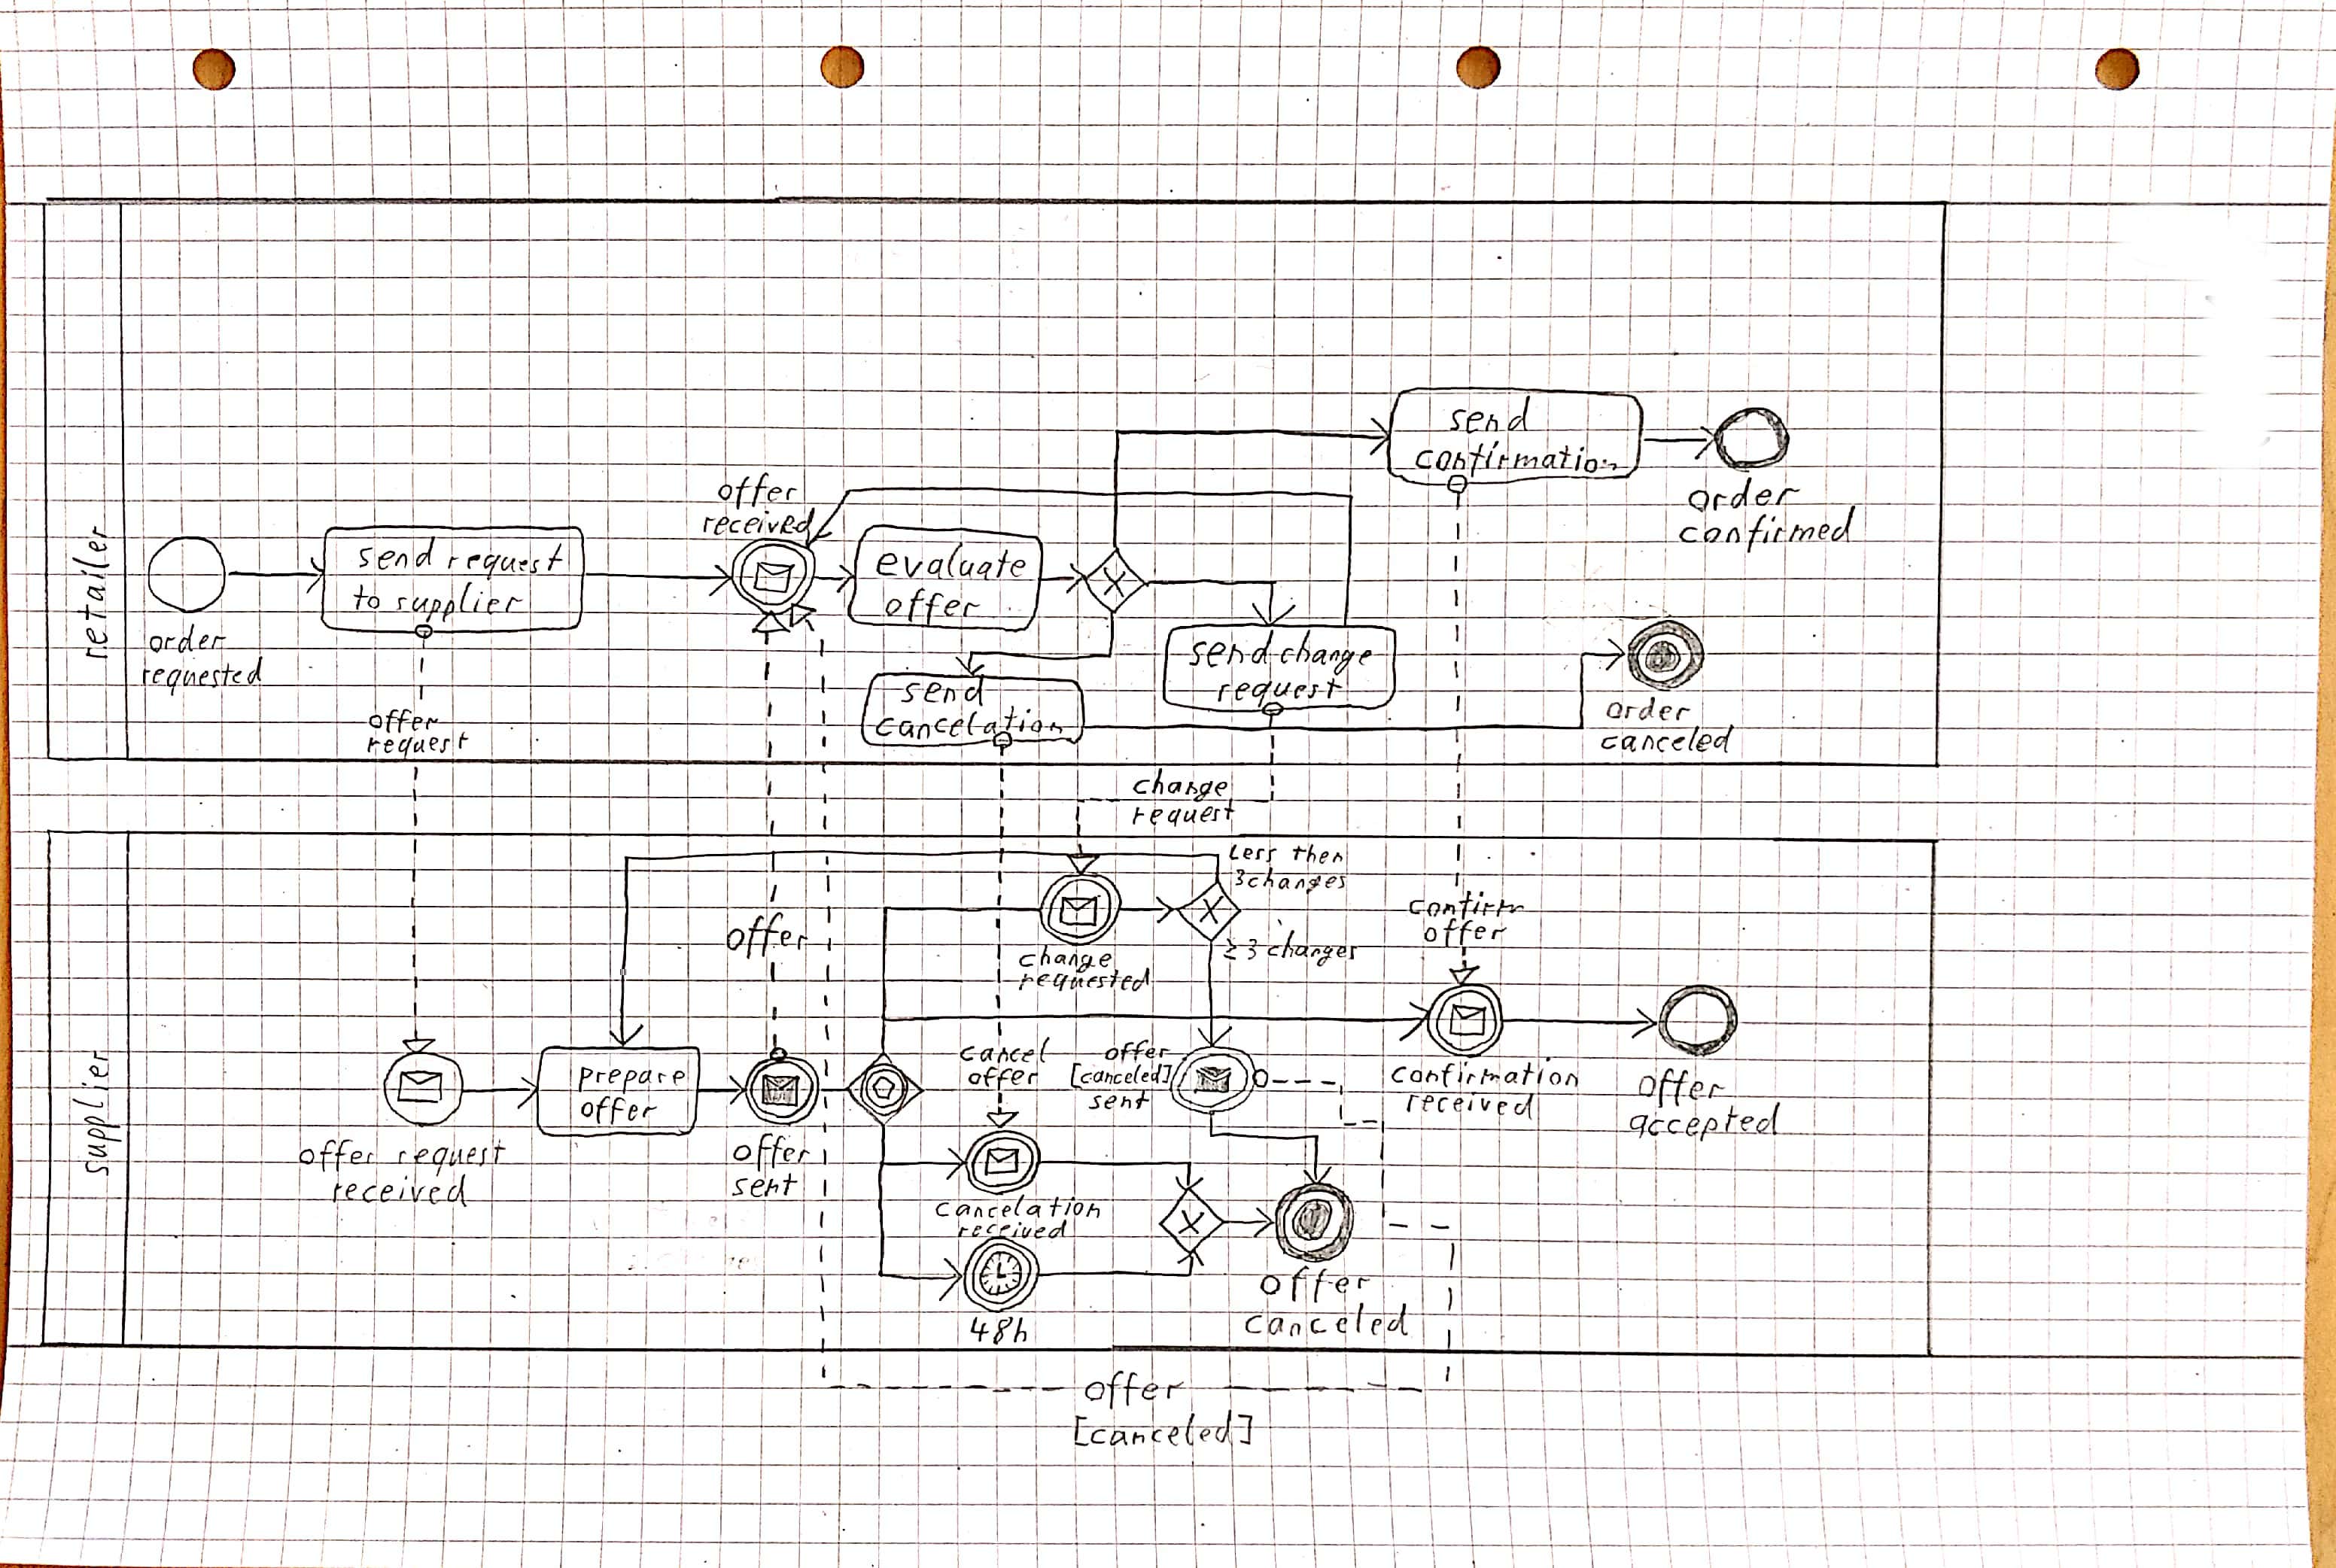 retailer
order
requested
send request
to supplier
offer
request
offer
received
evaluate
offer
X
send
confirmation
order
confirmed
send change
request
send
cancelation
order
canceled
change
request
supplier
offer request
received
prepare
offer
offer
offer
sent
change
requested
X
Less then
3 changes
≥ 3 changes
confirm
offer
confirmation
received
offer
accepted
cancel
offer
offer
[canceled]
sent
cancelation
received
48h
X
offer
canceled
offer
[canceled]